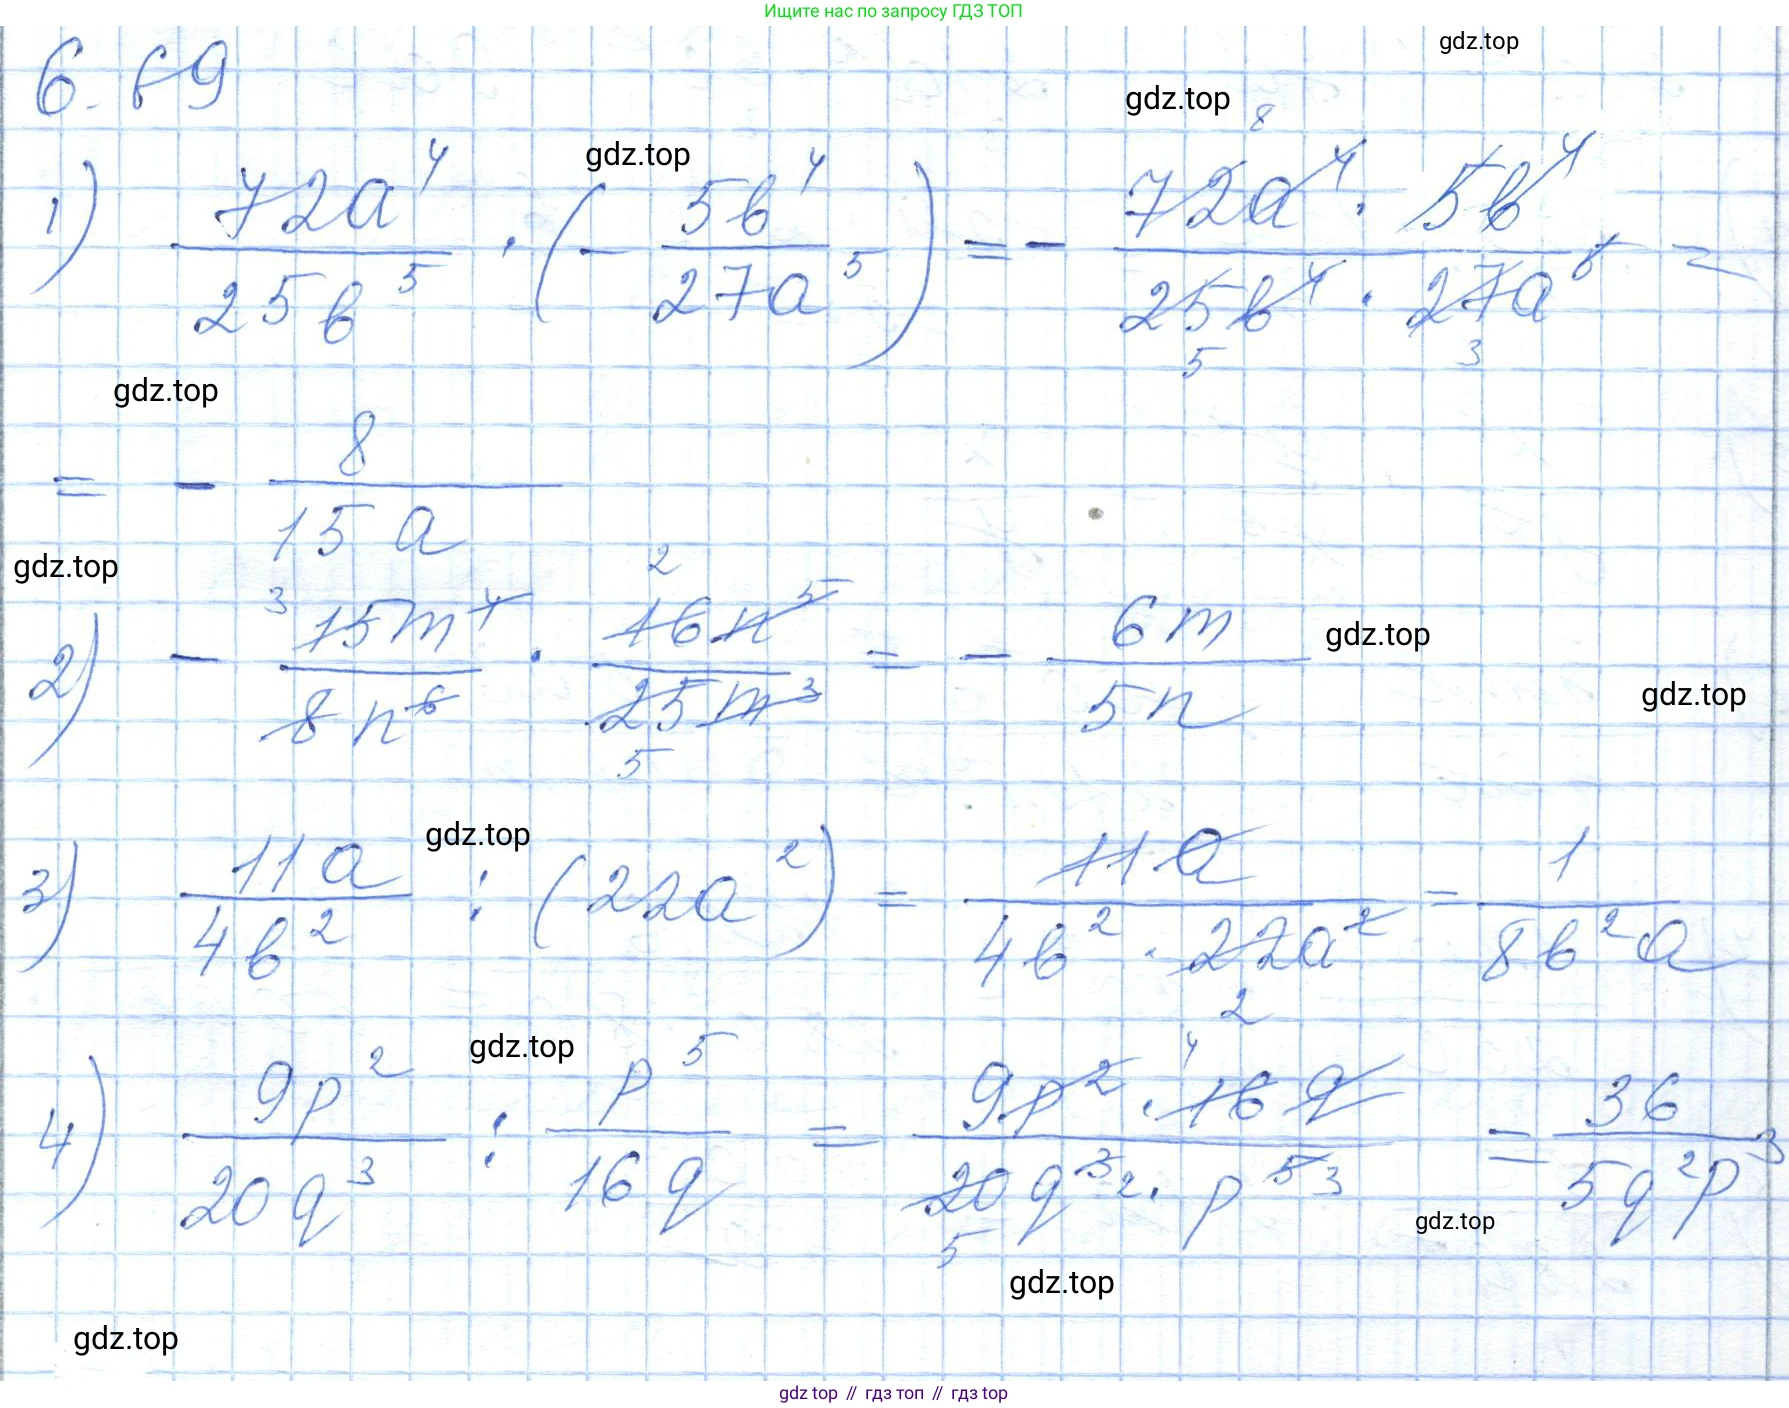 Ищите нас по запросу ГДЗ ТОП
gdz.top
6.69
gdz.top
1) 72a⁴/25b⁵ · (− 5b⁴/27a⁵) = − 72a⁴ · 5b⁴ / 25b⁴ · 27a⁵ =
gdz.top
8
5 3
gdz.top
= − 8/15a
gdz.top
2) − 15m⁴/8n⁶ · 16n⁵/25m³ = − 6m/5n
3 2
5
gdz.top
gdz.top
gdz.top
3) 11a/4b² : (22a²) = 11a / 4b² · 22a² = 1/8b²a
2
gdz.top
4) 9p²/20q³ : p⁵/16q = 9p² · 16q / 20q³ · p⁵ = 36/5q²p³
4
2 3
5
gdz.top
gdz.top
gdz.top
gdz top // гдз топ // гдз top